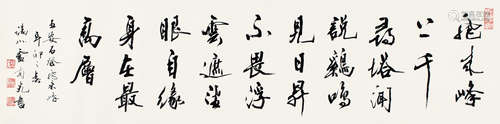 飛來峰
上千
尋塔聞
說鷄鳴
見日昇
不畏浮
雲遮望
眼自緣
身在最
高層
王安石登飛來峰
辛卯春
盧有光書